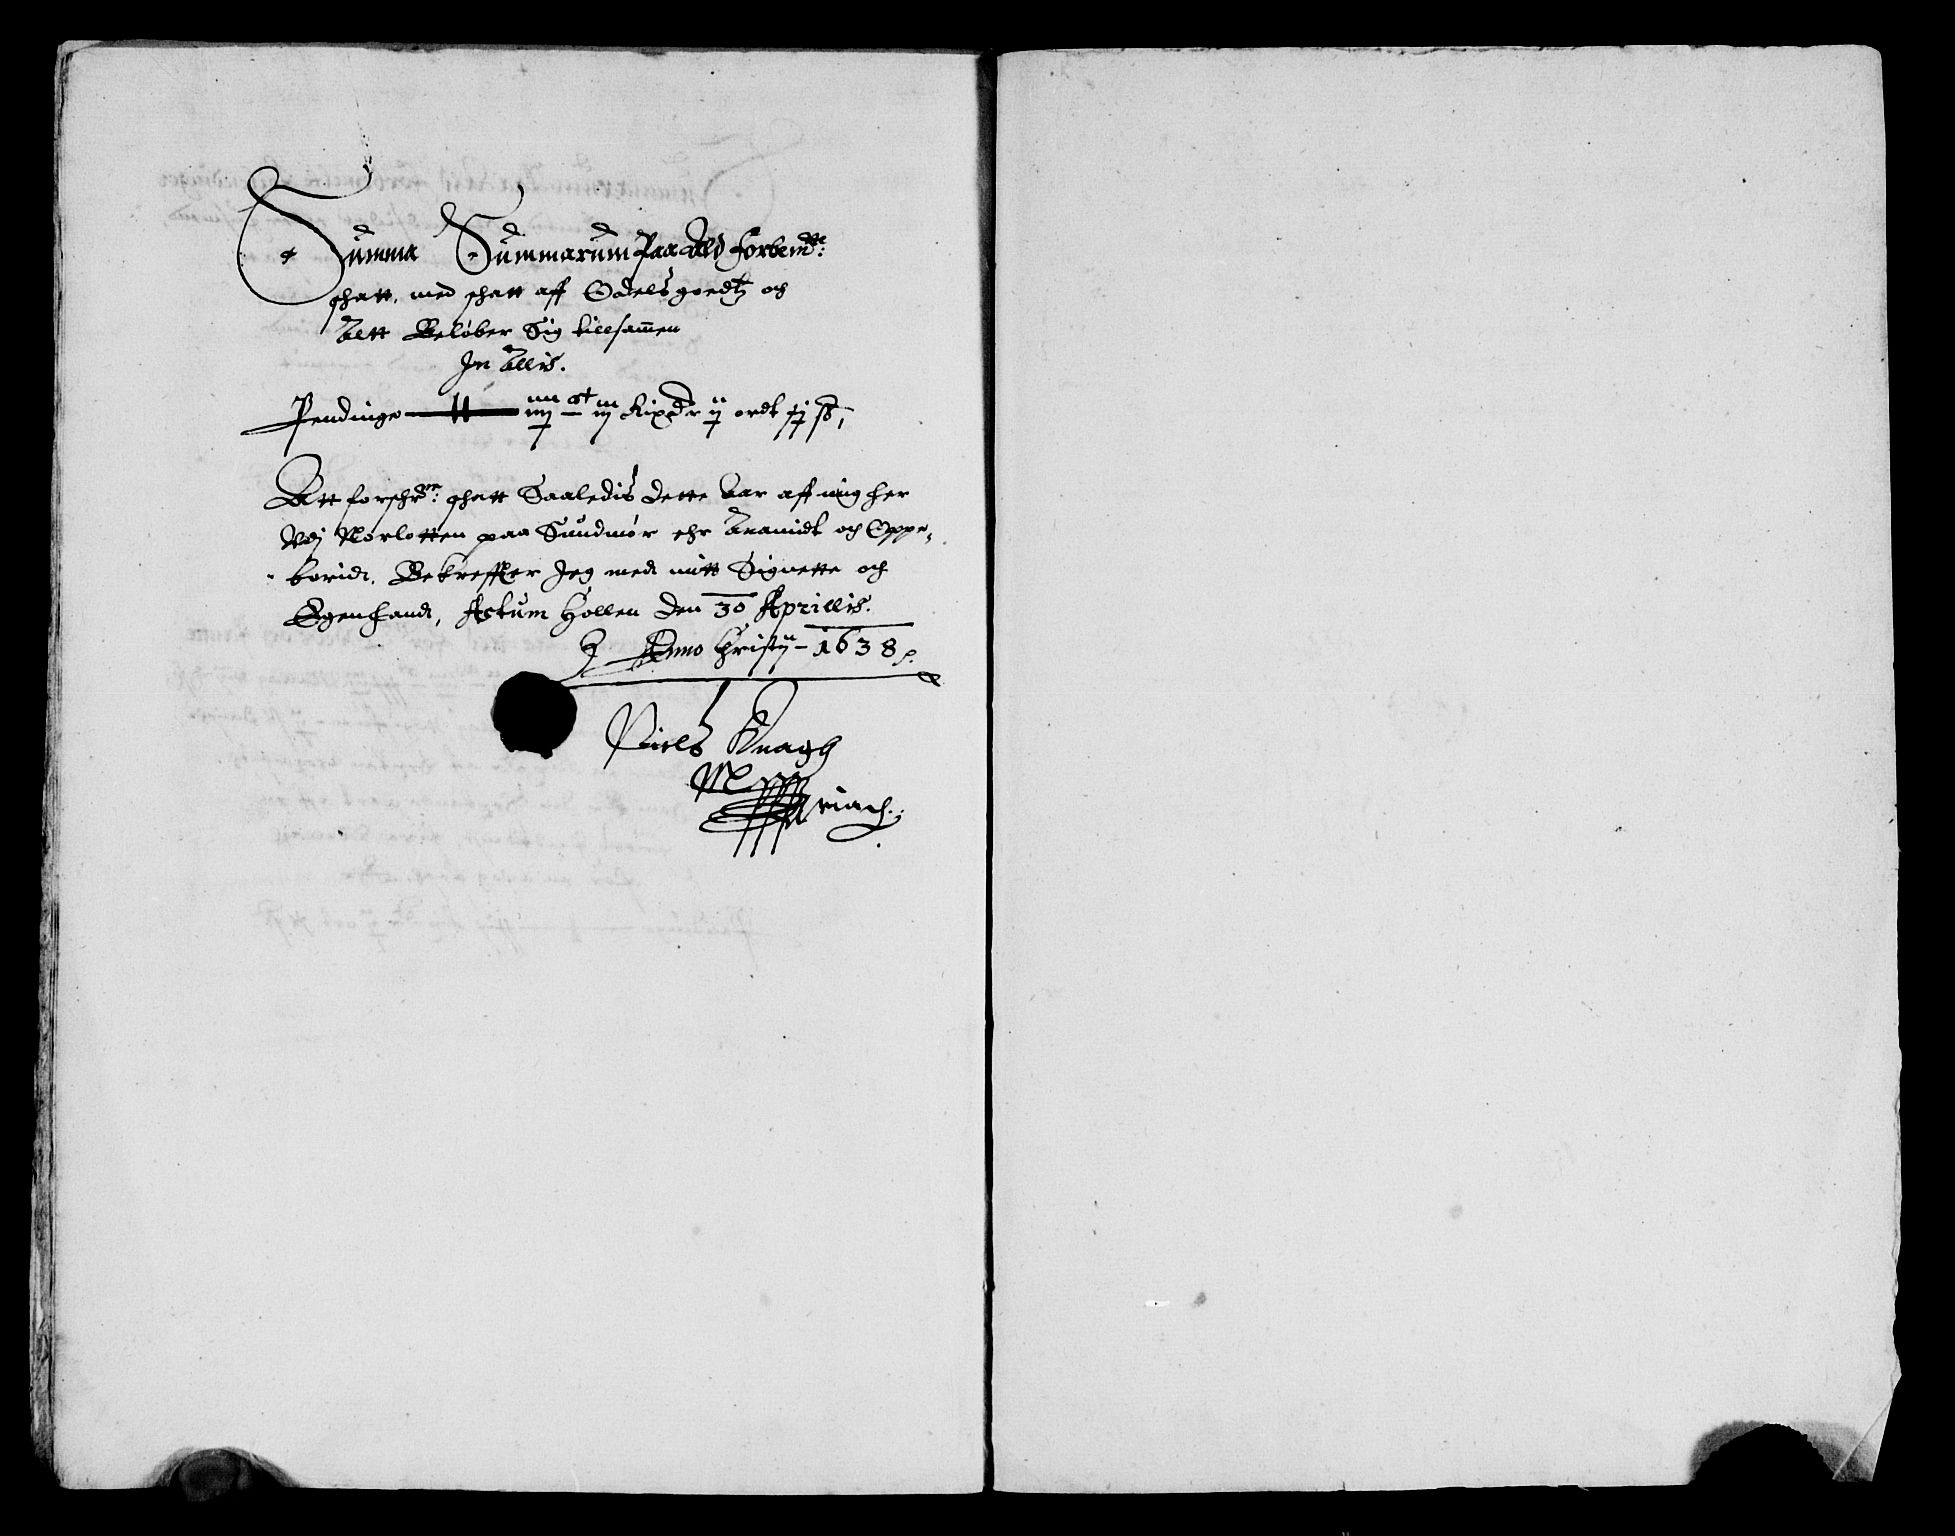 Summa Summarum Paa Ald forbemte:
schatt, med schatt aff Odelsgoedtz och
Alt Beløber Sig tillsamen
In Allis.
Pendinge iiij C iij Rixdr ij ordt
Att forschrne: schatt Saaledis dette Aar aff mig her
Vdj Norlotten paa Sundmør ehr Anamidt och Oppe-
borid, Bekreffter Jeg med mitt Signette och
Egenhand, Actum Hollen Den 30 Aprillis.
Anno Christij - 1638
Niels Knagh